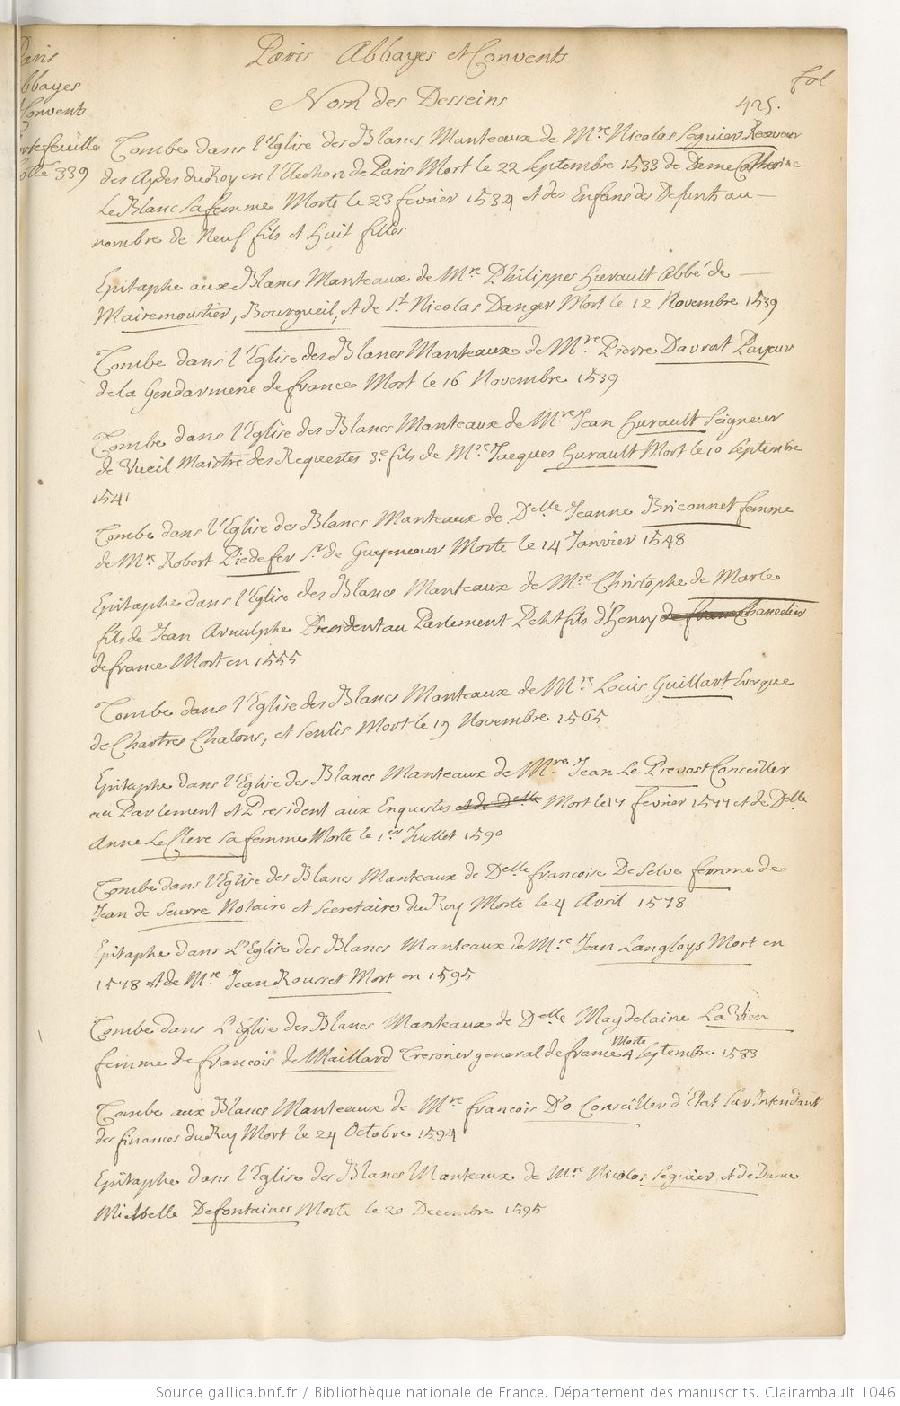 Paris Abbayes et Convents
Paris
Abbayes
et Convents
fol
Nom des Desseins
425.
Cotte 339
Tombe dans l'Eglise des Blancs Manteaux de Mre Nicolas Seguier Receveur
des Aydes du Roy en l'Election de Paris Mort le 22 Septembre 1533 de Dame Catherine
Le Blanc sa femme Morte le 23 fevrier 1534 et des Enfans des Defunts au
nombre de Neuf fils et Huit filles
Epitaphe aux Blancs Manteaux de Mre Philippes Hurault Abbé de
Mairemoustier, Bourgueil, et de St. Nicolas Danger Mort le 12 Novembre 1539
Tombe dans l'Eglise des Blancs Manteaux de Mre Pierre Davrat Payeur
de la Gendarmerie de france Mort le 16 Novembre 1539
Tombe dans l'Eglise des Blancs Manteaux de Mre Jean Hurault Seigneur
de Vueil Maistre des Requestes 3e fils de Mre Jacques Hurault Mort le 10 Septembre
1541
Tombe dans l'Eglise des Blancs Manteaux de Delle Jeanne Briconnet femme
de Mr. Robert Piedefer Sr. de Guyencour Morte le 14 Janvier 1548
Epitaphe dans l'Eglise des Blancs Manteaux de Mre Christophe de Marle
fils de Jean Arnulphe President au Parlement Petit fils d'Henry de france Chancelier
de france Mort en 1555
Tombe dans l'Eglise des Blancs Manteaux de Mre Louis Guillart Evesque
de Chartres Chalons, et Senlis Mort le 19 Novembre 1565
Epitaphe dans l'Eglise des Blancs Manteaux de Mre Jean Le Prevost Conseiller
au Parlement et President aux Enquestes et de Delle Mort le 17 fevrier 1577 et de Delle
Anne Le Clerc sa femme Morte le 1er Juillet 1590
Tombe dans l'Eglise des Blancs Manteaux de Delle francoise De Selve femme de
Jean de Seurre Notaire et Secretaire du Roy Morte le 4 Avril 1578
Epitaphe dans L'Eglise des Blancs Manteaux de Mre Jean Langloys Mort en
1578 et de Mre Jean Rousset Mort en 1595
Tombe dans L'Eglise des Blancs Manteaux de Delle Magdelaine
femme de francois de Maillard Tresorier general de france Morte 4 Septembre 1583
Tombe aux Blancs Manteaux de Mre francois D'o Conseiller d'Etat Sur Intendant
des finances du Roy Mort le 24 Octobre 1594
Epitaphe dans l'Eglise des Blancs Manteaux de Mre Nicolas Seguier et de Dame
Defontaines Morte le 20 Decembre 1595
Source gallica.bnf.fr / Bibliothèque nationale de France. Département des manuscrits. Clairambault 1046